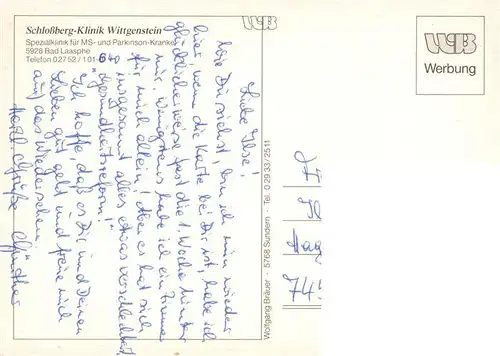 Schloßberg-Klinik Wittgenstein
Spezialklinik für MS- und Parkinson-Kranke
5928 Bad Laasphe
Telefon 02752 / 101-
WB
WB
Werbung
Liebe Ilse!
Wie Du siehst, bin ich nun wieder
hier, wenn die Karte bei Dir ist, habe ich
glücklicherweise fast die 1. Woche hinter
mir. Wenigstens habe ich ein Zimmer
für mich allein! Aber es hat sich
insgesamt alles etwas verschlechtert
"Gesundheitsreform!"
Ich hoffe, daß es Dir und Deinen
Lieben gut geht und freue mich
auf das Wiedersehen.
Herzl. Grüße Günther
Wolfgang Bräuer · 5768 Sundern · Tel. 02933/2511
Hag
74